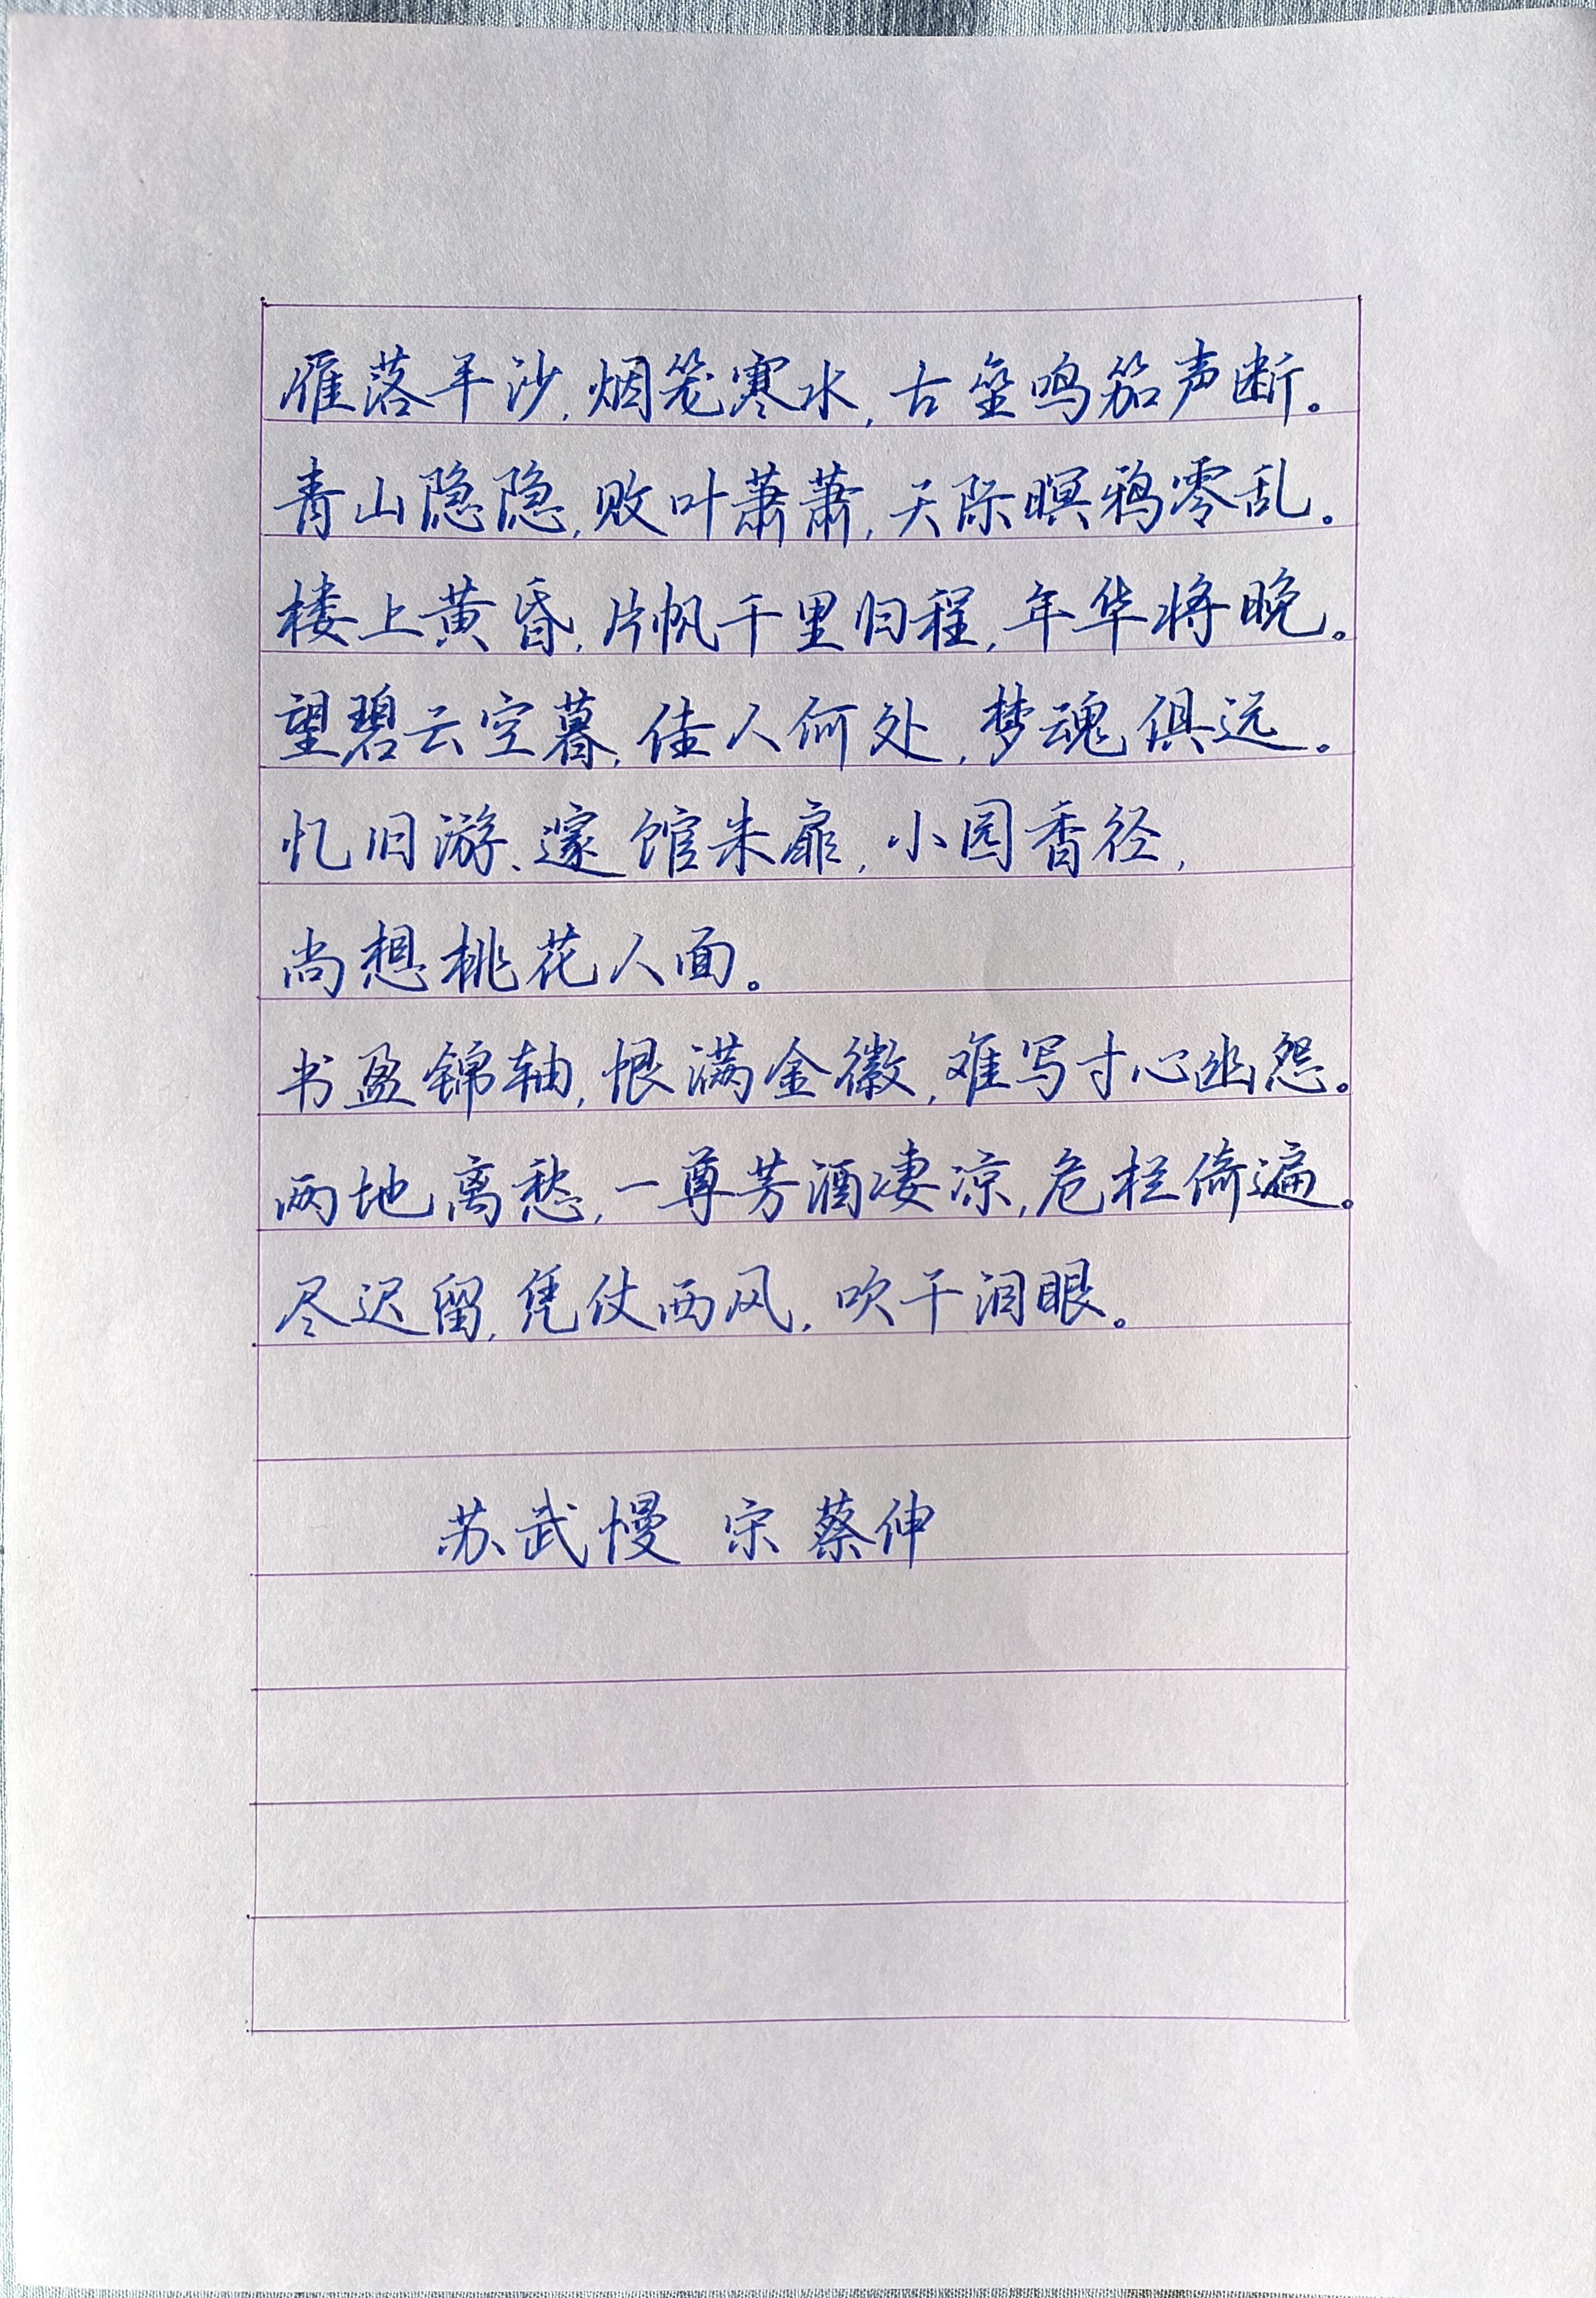 雁落平沙,烟笼寒水,古垒鸣笳声断。
青山隐隐,败叶萧萧,天际暝鸦零乱。
楼上黄昏,片帆千里归程,年华将晚。
望碧云空暮,佳人何处,梦魂俱远。
忆旧游、邃馆朱扉,小园香径,
尚想桃花人面。
书盈锦轴,恨满金徽,难写寸心幽怨。
两地离愁,一尊芳酒凄凉,危栏倚遍。
尽迟留,凭仗西风,吹干泪眼。
苏武慢 宋 蔡伸